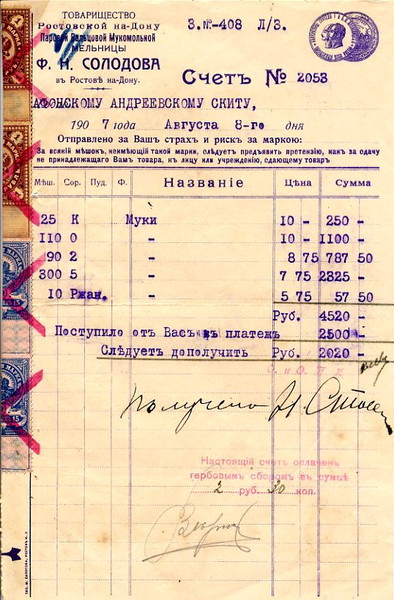 ТОВАРИЩЕСТВО
Ростовской на-Дону
Паровой Вальцовой Мукомольной
МЕЛЬНИЦЫ
Ф. Н. СОЛОДОВА
въ Ростовѣ на-Дону.
З.№-408 Л/З.
Счетъ № 2053
АФОНСКОМУ АНДРЕЕВСКОМУ СКИТУ,
1907 года Августа 8-го дня
Отправлено за Вашъ страхъ и рискъ за маркою:
За всякій мѣшокъ, неимѣющій такой марки, слѣдуетъ предъявить претензію, какъ за сдачу
не принадлежащаго Вамъ товара, къ лицу или учрежденію, сдающему товаръ
Мѣш. Сор. Пуд. Ф. Названіе Цѣна Сумма
25 К Муки 10 - 250 -
110 0 " 10 - 1100 -
90 2 " 8 75 787 50
300 5 " 7 75 2325 -
10 Ржан. " 5 75 57 50
Руб. 4520 -
Поступило отъ Васъ въ платежъ 2500 -
Слѣдуетъ дополучить Руб. 2020 -
получено Н.
Настоящій счетъ оплаченъ
гербовымъ сборомъ въ суммѣ
2 руб. 30 коп.